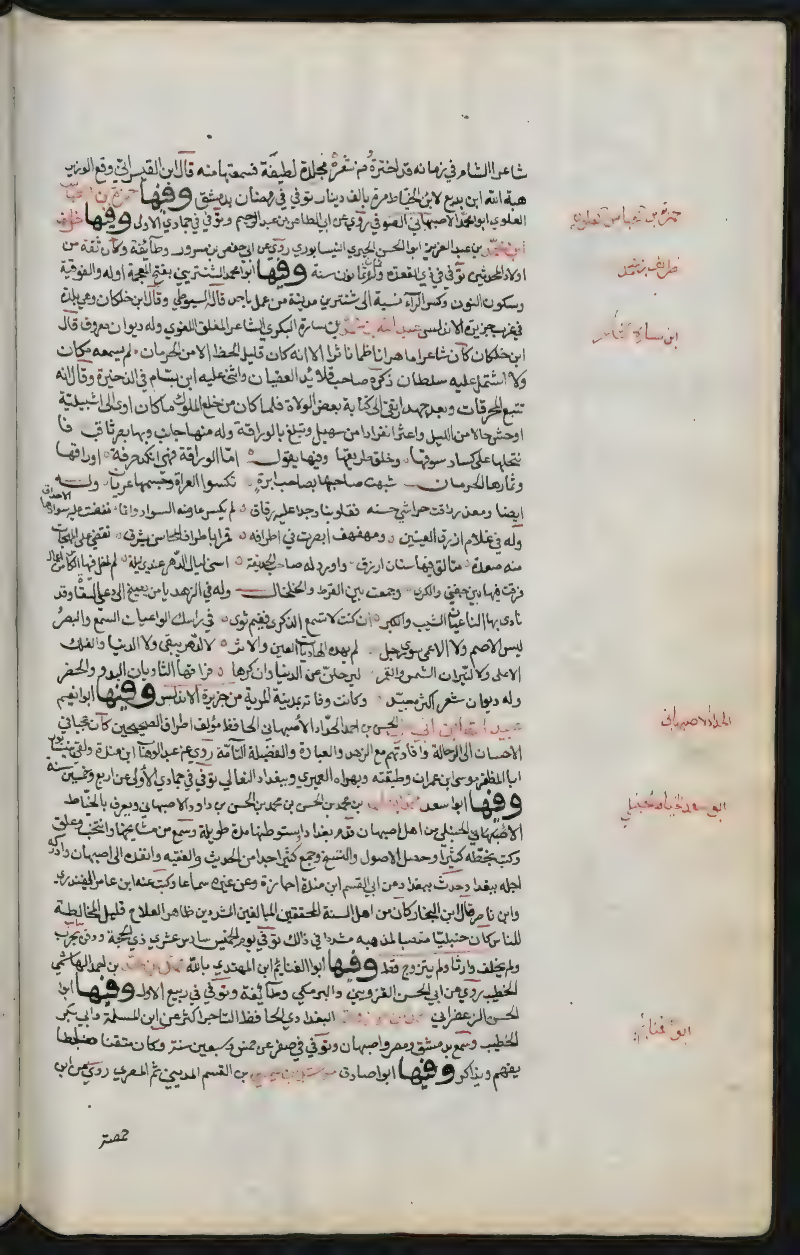 شاعر الشام في زمانه قد اخترت من شعره مجلدة لطيفة فسمعتها منه قال ابن القيسراني وقع الوزير
هبة الله ابن بديع لابن الخياط مرة بالف دينار توفي في رمضان بدمشق وفيها حمزة بن العباس
العلوي ابو محمد الاصبهاني الصوفي روي عن ابي الطاهر بن عبد الرحيم وتوفي في جمادي الاولي وفيها
بن عبد العزيز ابو الحسن الحيري النيسابوري روي عن ابي حفص بن مسرور وطائفة وكان ثقة من
اولاد المحدثين توفي في ذي القعدة وله ثمانون سنة وفيها ابو محمد الشنتريني بفتح المعجمة اوله والفوقية
وسكون النون وكسر الراء نسبة الى شنترين مدينة من عمل باجه قال السيوطي وقال ابن خلكان وهي بلدة
في غرب جزيرة الاندلس عبد الله بن سارة البكري الشاعر المفلق اللغوي وله ديوان معروف قال
ابن خلكان كان شاعرا ماهرا ناظما ناثرا الا انه كان قليل الحظ الا من الحرمان لم يسعه مكان
ولا اشتمل عليه سلطان ذكره صاحب قلائد العقيان واثنى عليه ابن بسام في الذخيرة وقال انه
تتبع المحقرات وبعد جهد ارتقى الى كتابة بعض الولاة فلما كان من خلع الملوك ما كان اوى الى اشبيلية
اوحش حالا من الليل واعثر انفرادا من سهيل وتبلغ بالوراقة وله منها جانب وبها بصر ثاقب فا
نتحلها على كساد سوقها وخلو طريقها وفيها يقول اما الوراقة فهي انكد حرفة اوراقها
وثمارها الحرمان شبهت صاحبها بصاحب ابرة تكسوا العراة وجسمها عريان وله
ايضا ومعذر رقت حواشي حسنه فقلوبنا وجدا عليه رقاق لم يكس عارضه السواد وانما نفضت عليه سوادها الاحداق
وله في غلام ازرق العينين ومهفهف ابصرت في اطواقه قمرا باطراف المحاسن يشرق تقضي على المهجات
منه صعدة متالق فيها سنان ازرق واورد له صاحب الحديقة اسنى ليال الدهر عندي ليلة لم اخل فيها الكاس من اعمال
فرقت فيها بين جفني والكرى وجمعت بين القرط والخلخال وله في الزهد يا من يصيخ الى داعي السقاه وقد
نادى بها الناعيان الشيب والكبر ان كنت لا تسمع الذكرى ففيم ثوى في راسك الواعيان السمع والبصر
ليس الاصم ولا الاعمى سوى رجل لم يهده الهاديان العين والاثر لا الدهر يبقى ولا الدنيا ولا الفلك
الاعلى ولا النيران الشمس والقمر ليرحلن عن الدنيا وان كرها فراقها الثاويان البدو والحضر
وله ديوان شعر اكثره جيد وكانت وفاته بمدينة المرية من جزيرة الاندلس وفيها ابو نعيم
عبيد الله ابن ابي علي الحسن بن احمد الحداد الاصبهاني الحافظ مؤلف اطراف الصحيحين كان عجبا في
الاحسان الى الرحالة وافادتهم مع الزهد والعبادة والفضيلة التامة روي عن عبد الوهاب ابن مندة ولقي بنيسابور
ابا المظفر موسى ابن عمران وطبقته وبهراة العميري وببغداد النعالي توفي في جمادي الاولى عن اربع وخمسين سنة
وفيها ابو سعد بن محمد بن الحسن بن محمد بن الحسن بن داود الاصبهاني ويعرف بالخياط
الاصبهاني الحنبلي من اهل اصبهان قدم بغداد واستوطنها مدة طويلة وسمع من مشايخها وانتخب وعلق
وكتب بخطه كثيرا وحصل الاصول والنسخ وجمع كثيرا جدا من الحديث والفقه وانفذه الى اصبهان وادركه
اجله ببغداد وحدث ببغداد عن ابي القسم ابن مندة اجازة وعن غيره سماعا وكتب عنه ابن عامر العبدري
وابن ناصر قال ابن النجار كان من اهل السنة المحققين المبالغين المشددين ظاهر الصلاح قليل المخالطة
للناس كان حنبليا متعصبا لمذهبه مشددا في ذلك توفي يوم الخميس سادس عشري ذي الحجة ودفن بباب حرب
ولم يخلف وارثا ولم يتزوج قط وفيها ابو الغنائم ابن المهتدي بالله محمد بن احمد الهاشمي
الخطيب روي عن ابي الحسن القزويني والبرمكي وطائفة وتوفي في ربيع الاول وفيها ابو
الحسن الزعفراني البغدادي الحافظ التاجر اكثر عن ابن المسلمة وابي بكر
الخطيب وسمع بدمشق ومصر واصبهان وتوفي في صفر عن خمس وسبعين سنة وكان متقنا ضابطا
يفهم ويذاكر وفيها ابو صادق مرشد بن يحيى بن القسم المديني ثم المصري روي عن ابن
حمصة
حمزة بن العباس العلوي
ظريف بن محمد
ابن سارة الشاعر
الحداد الاصبهاني
ابو سعد الخياط الحنبلي
ابو الغنائم